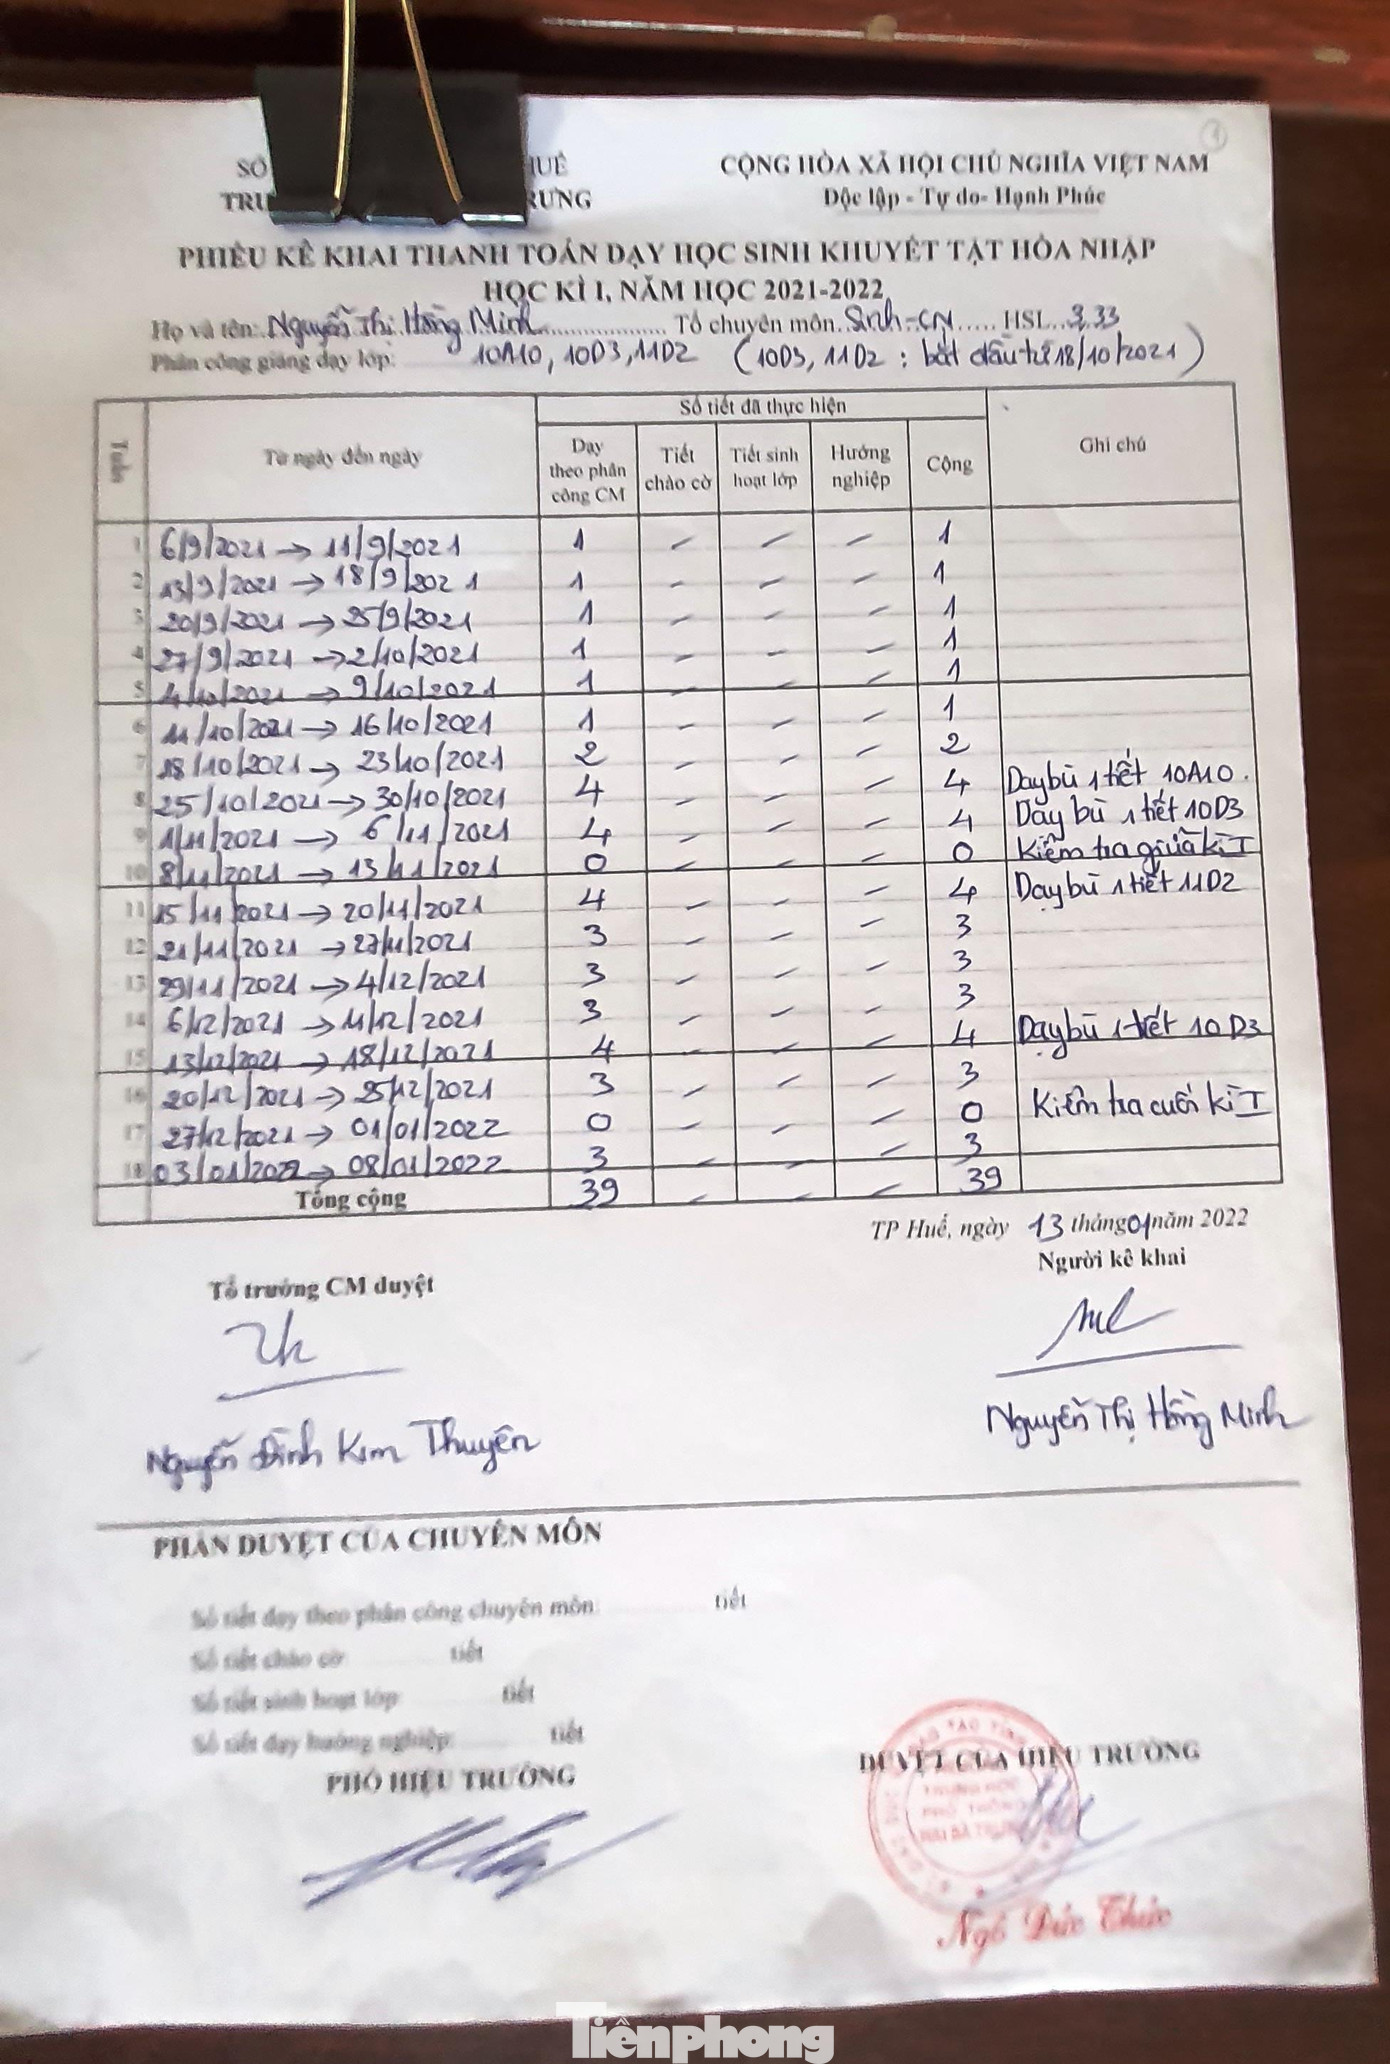 SỞ HUẾ
CỘNG HÒA XÃ HỘI CHỦ NGHĨA VIỆT NAM
TRƯNG
Độc lập - Tự do- Hạnh Phúc
PHIẾU KÊ KHAI THANH TOÁN DẠY HỌC SINH KHUYẾT TẬT HÒA NHẬP
HỌC KÌ I, NĂM HỌC 2021-2022
Họ và tên: Nguyễn Thị Hồng Minh Tổ chuyên môn Sinh-CN HSL 3,33
Phân công giảng dạy lớp: 10A10, 10D3, 11D2 (10D3, 11D2 : bắt đầu từ 18/10/2021)
Tuần Từ ngày đến ngày Số tiết đã thực hiện Ghi chú
Dạy theo phân công CM Tiết chào cờ Tiết sinh hoạt lớp Hướng nghiệp Cộng
1 6/9/2021 → 11/9/2021 1 - - - 1
2 13/9/2021 → 18/9/2021 1 - - - 1
3 20/9/2021 → 25/9/2021 1 - - - 1
4 27/9/2021 → 2/10/2021 1 - - - 1
5 4/10/2021 → 9/10/2021 1 - - - 1
6 11/10/2021 → 16/10/2021 1 - - - 1
7 18/10/2021 → 23/10/2021 2 - - - 2
8 25/10/2021 → 30/10/2021 4 - - - 4 Dạy bù 1 tiết 10A10.
9 1/11/2021 → 6/11/2021 4 - - - 4 Dạy bù 1 tiết 10D3
10 8/11/2021 → 13/11/2021 0 - - - 0 Kiểm tra giữa kì I
11 15/11/2021 → 20/11/2021 4 - - - 4 Dạy bù 1 tiết 11D2
12 21/11/2021 → 27/11/2021 3 - - - 3
13 29/11/2021 → 4/12/2021 3 - - - 3
14 6/12/2021 → 11/12/2021 3 - - - 3
15 13/12/2021 → 18/12/2021 4 - - - 4 Dạy bù 1 tiết 10D3
16 20/12/2021 → 25/12/2021 3 - - - 3
17 27/12/2021 → 01/01/2022 0 - - - 0 Kiểm tra cuối kì I
18 03/01/2022 → 08/01/2022 3 - - - 3
Tổng cộng 39 - - - 39
TP Huế, ngày 13 tháng 01 năm 2022
Người kê khai
Tổ trưởng CM duyệt
Nguyễn Thị Hồng Minh
Nguyễn Đình Kim Thuyên
PHẦN DUYỆT CỦA CHUYÊN MÔN
Số tiết dạy theo phân công chuyên môn: tiết
Số tiết chào cờ tiết
Số tiết sinh hoạt lớp tiết
Số tiết dạy hướng nghiệp: tiết
PHÓ HIỆU TRƯỞNG
DUYỆT CỦA HIỆU TRƯỞNG
TRUNG HỌC
PHỔ THÔNG
HAI BÀ TRƯNG
Ngô Đức Thức
Tiênphong